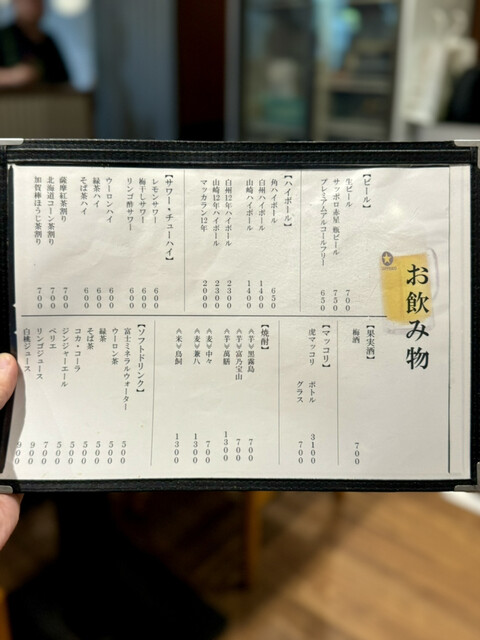 お飲み物
【ビール】
生ビール 700
サッポロ赤星 瓶ビール 750
プレミアムアルコールフリー 650
【ハイボール】
角ハイボール 650
白州ハイボール 1400
山崎ハイボール 1400
白州12年ハイボール 2300
山崎12年ハイボール 2300
マッカラン12年 2000
【サワー・チューハイ】
レモンサワー 600
梅干しサワー 600
リンゴ酢サワー 600
ウーロンハイ 600
緑茶ハイ 600
そば茶ハイ 600
薩摩紅茶割り 700
北海道コーン茶割り 700
加賀棒ほうじ茶割り 700
【果実酒】
梅酒 700
【マッコリ】
虎マッコリ ボトル 3100
グラス 700
【焼酎】
≪芋≫黒霧島 700
≪芋≫富乃宝山 700
≪芋≫萬膳 1300
≪麦≫中々 700
≪麦≫兼八 1300
≪米≫鳥飼 1300
【ソフトドリンク】
富士ミネラルウォーター 500
ウーロン茶 500
緑茶 500
そば茶 500
コカ・コーラ 500
ジンジャーエール 500
ペリエ 700
リンゴジュース 900
白桃ジュース 900